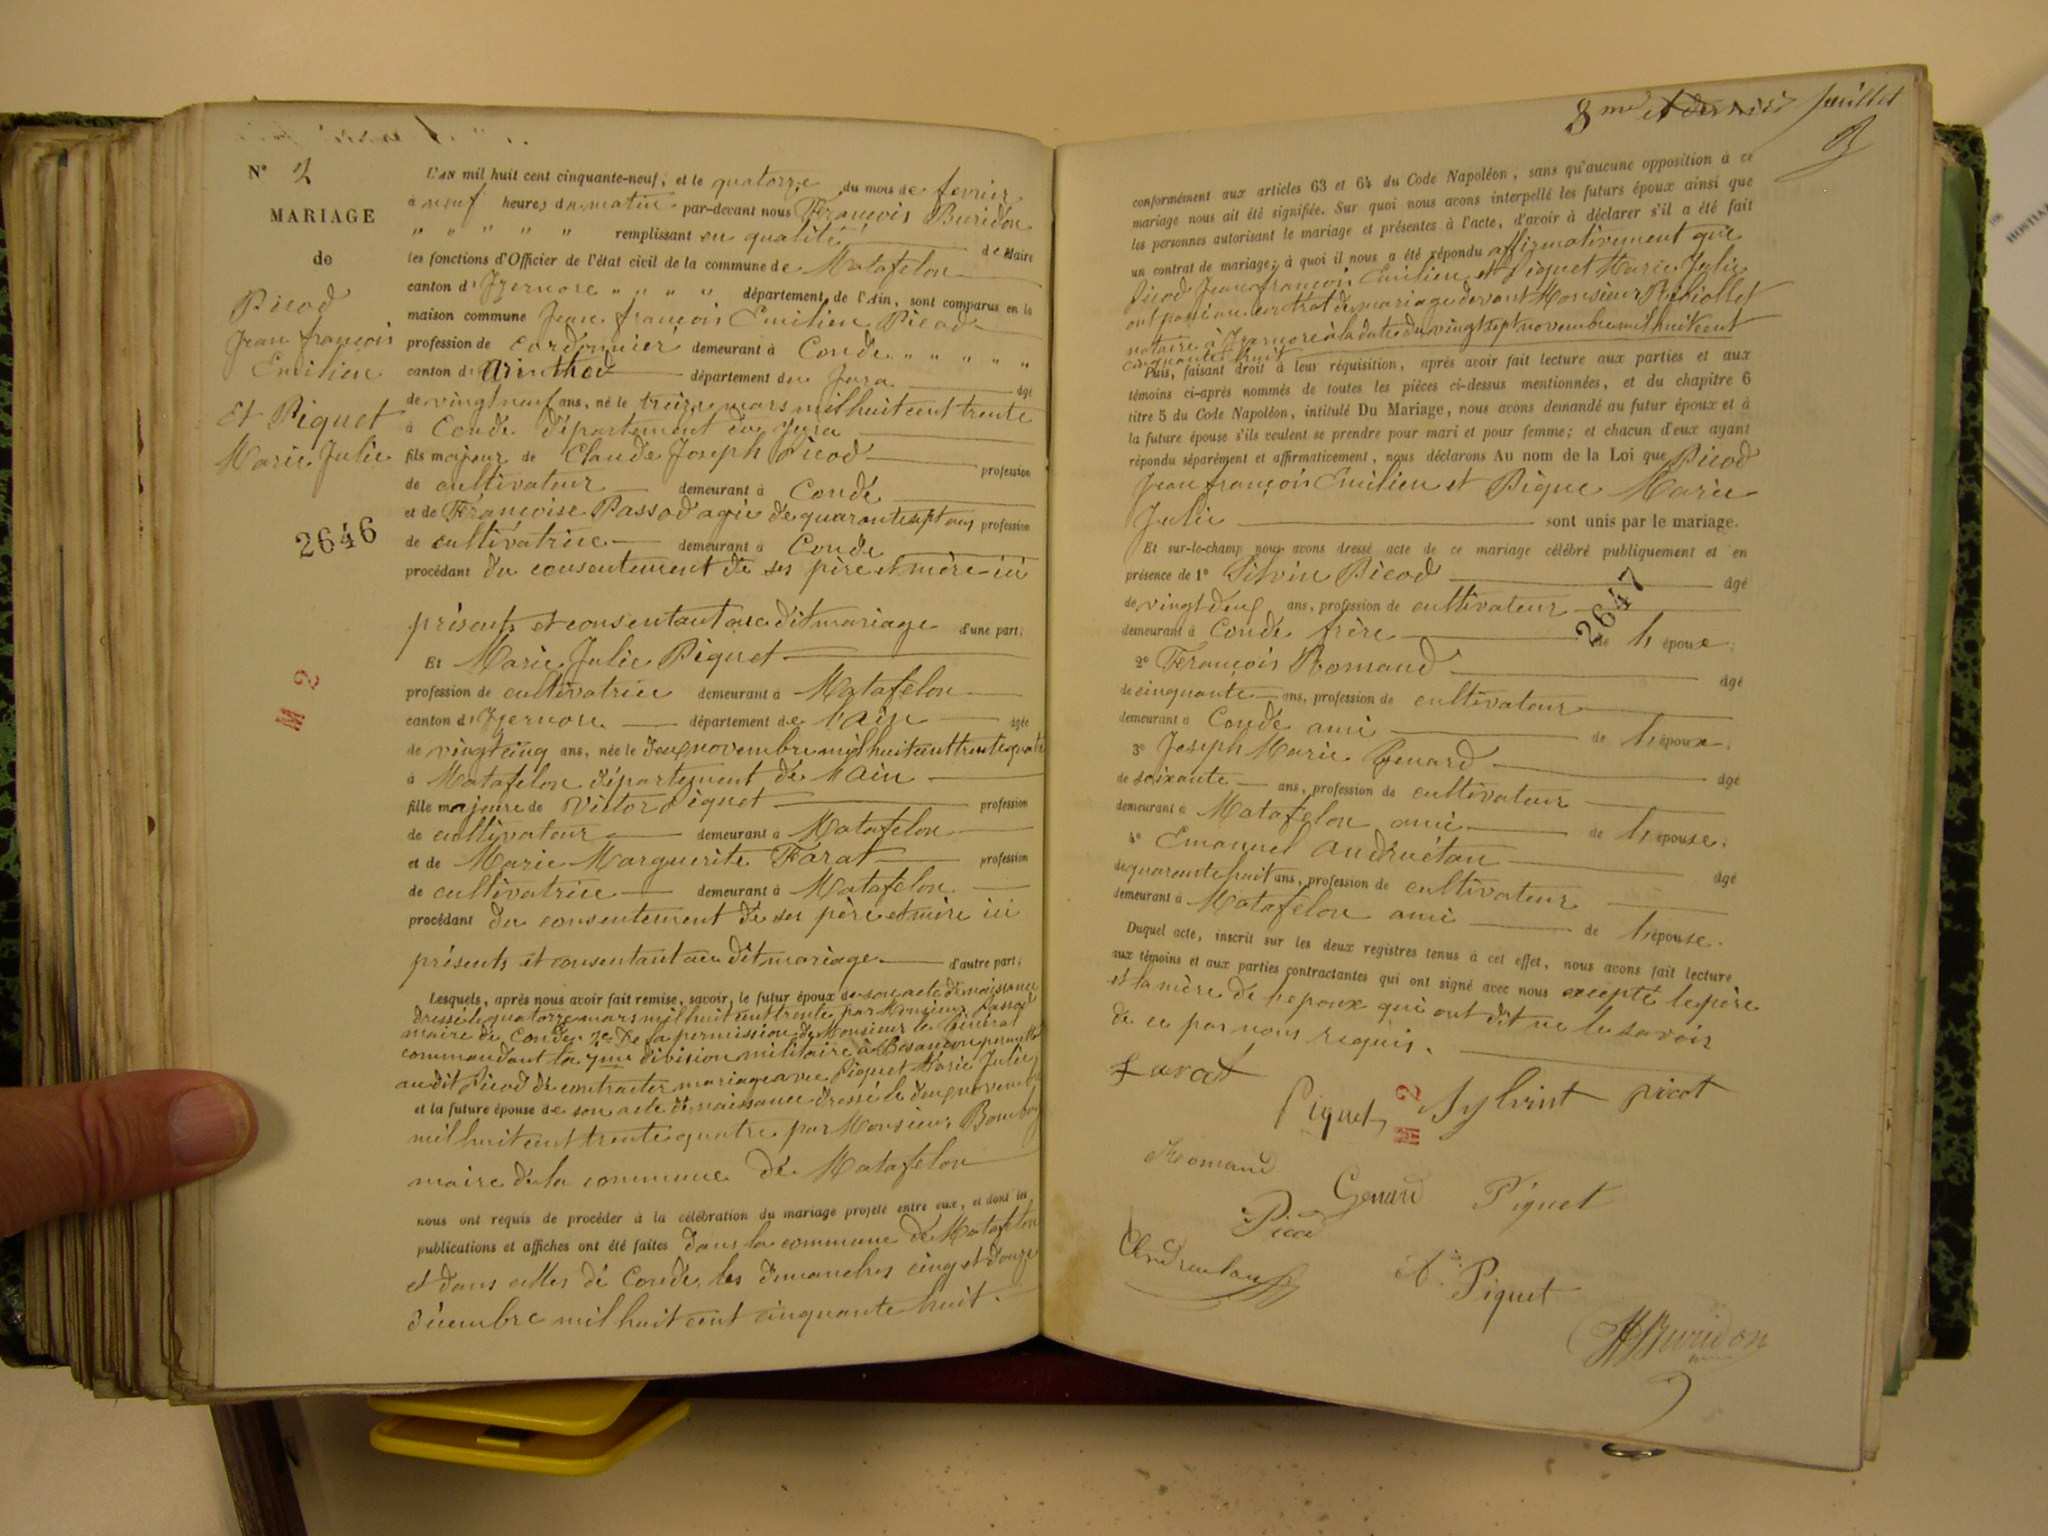 N° 2
MARIAGE
de
Picod
Jean françois
Emilien
Et Piquet
Marie Julie
2646
M 2
L'AN mil huit cent cinquante-neuf, et le quatorze du mois de fevrier
à neuf heures du matin par-devant nous François Buridon
" " " " " remplissant en qualité de Maire
les fonctions d'Officier de l'état civil de la commune de Matafelon
canton d'Izernore " " " " département de l'Ain, sont comparus en la
maison commune Jean françois Emilien Picod
profession de cordonnier demeurant à Condé " " " " "
canton d'Arinthod département du Jura âgé
de vingt neuf ans, né le treize mars mil huit cent trente
à Condé département du Jura
fils majeur de Claude Joseph Picod profession
de cultivateur demeurant à Condé
et de Françoise Passod agée de quarante sept ans profession
de cultivatrice demeurant à Conde
procédant du consentement de ses père et mère ici
présents et consentant au dit mariage d'une part.
Et Marie Julie Piquet
profession de cultivatrice demeurant à Matafelon
canton d'Izernore département de l'ain âgée
de vingt cinq ans, née le deux novembre mil huit cent trente quatre
à Matafelon département de l'ain
fille majeure de Victor Piquet profession
de cultivateur demeurant à Matafelon
et de Marie Marguerite Farat profession
de cultivatrice demeurant à Matafelon
procédant du consentement de ses père et mère ici
présents et consentant au dit mariage d'autre part;
Lesquels, après nous avoir fait remise, savoir, le futur époux de son acte de naissance
dressé le quatorze mars mil huit cent trente par Monsieur Passod
maire de Condé, 2° De la permission de Monsieur le Général
commandant la 7me division militaire à Besançon
au dit Picod de contracter mariage avec Piquet Marie Julie
et la future épouse de son acte de naissance dressé le deux novembre
mil huit cent trente quatre par Monsieur
maire de la commune de Matafelon
nous ont requis de procéder à la célébration du mariage projeté entre eux, et dont les
publications et affiches ont été faites dans la commune de Matafelon
et dans celles de Condé, les dimanches cinq et douze
décembre mil huit cent cinquante huit.
8me et dernier feuillet
conformément aux articles 63 et 64 du Code Napoléon, sans qu'aucune opposition à ce
mariage nous ait été signifiée. Sur quoi nous avons interpellé les futurs époux ainsi que
les personnes autorisant le mariage et présentes à l'acte, d'avoir à déclarer s'il a été fait
un contrat de mariage; à quoi il nous a été répondu affirmativement que
Picod Jean françois Emilien et Piquet Marie Julie
ont passé un contrat de mariage devant Monsieur
notaire à Izernore à la date du vingt sept novembre mil huit cent
cinquante huit
Puis, faisant droit à leur réquisition, après avoir fait lecture aux parties et aux
témoins ci-après nommés de toutes les pièces ci-dessus mentionnées, et du chapitre 6
titre 5 du Code Napoléon, intitulé Du Mariage, nous avons demandé au futur époux et à
la future épouse s'ils veulent se prendre pour mari et pour femme; et chacun d'eux ayant
répondu séparément et affirmativement, nous déclarons Au nom de la Loi que Picod
Jean françois Emilien et Pique Marie
Julie sont unis par le mariage.
Et sur-le-champ nous avons dressé acte de ce mariage célébré publiquement et en
présence de 1° Silvin Picod âgé
de vingt deux ans, profession de cultivateur
2647
demeurant à Condé frère de l'époux;
2° François Romand âgé
de cinquante ans, profession de cultivateur
demeurant à Condé ami de l'époux;
3° Joseph Marie Genard âgé
de soixante ans, profession de cultivateur
demeurant à Matafelon ami de l'épouse;
4° Emanuel Andruétan âgé
de quarante huit ans, profession de cultivateur
demeurant à Matafelon ami de l'épouse.
Duquel acte, inscrit sur les deux registres tenus à cet effet, nous avons fait lecture
aux témoins et aux parties contractantes qui ont signé avec nous excepté le père
et la mère de l'epoux qui ont dit ne le savoir
de ce par nous requis.
Farat
Piquet
M 2
Sylvint picot
Romand
Genard
Piquet
Picod
Andruetan
Piquet
Buridon